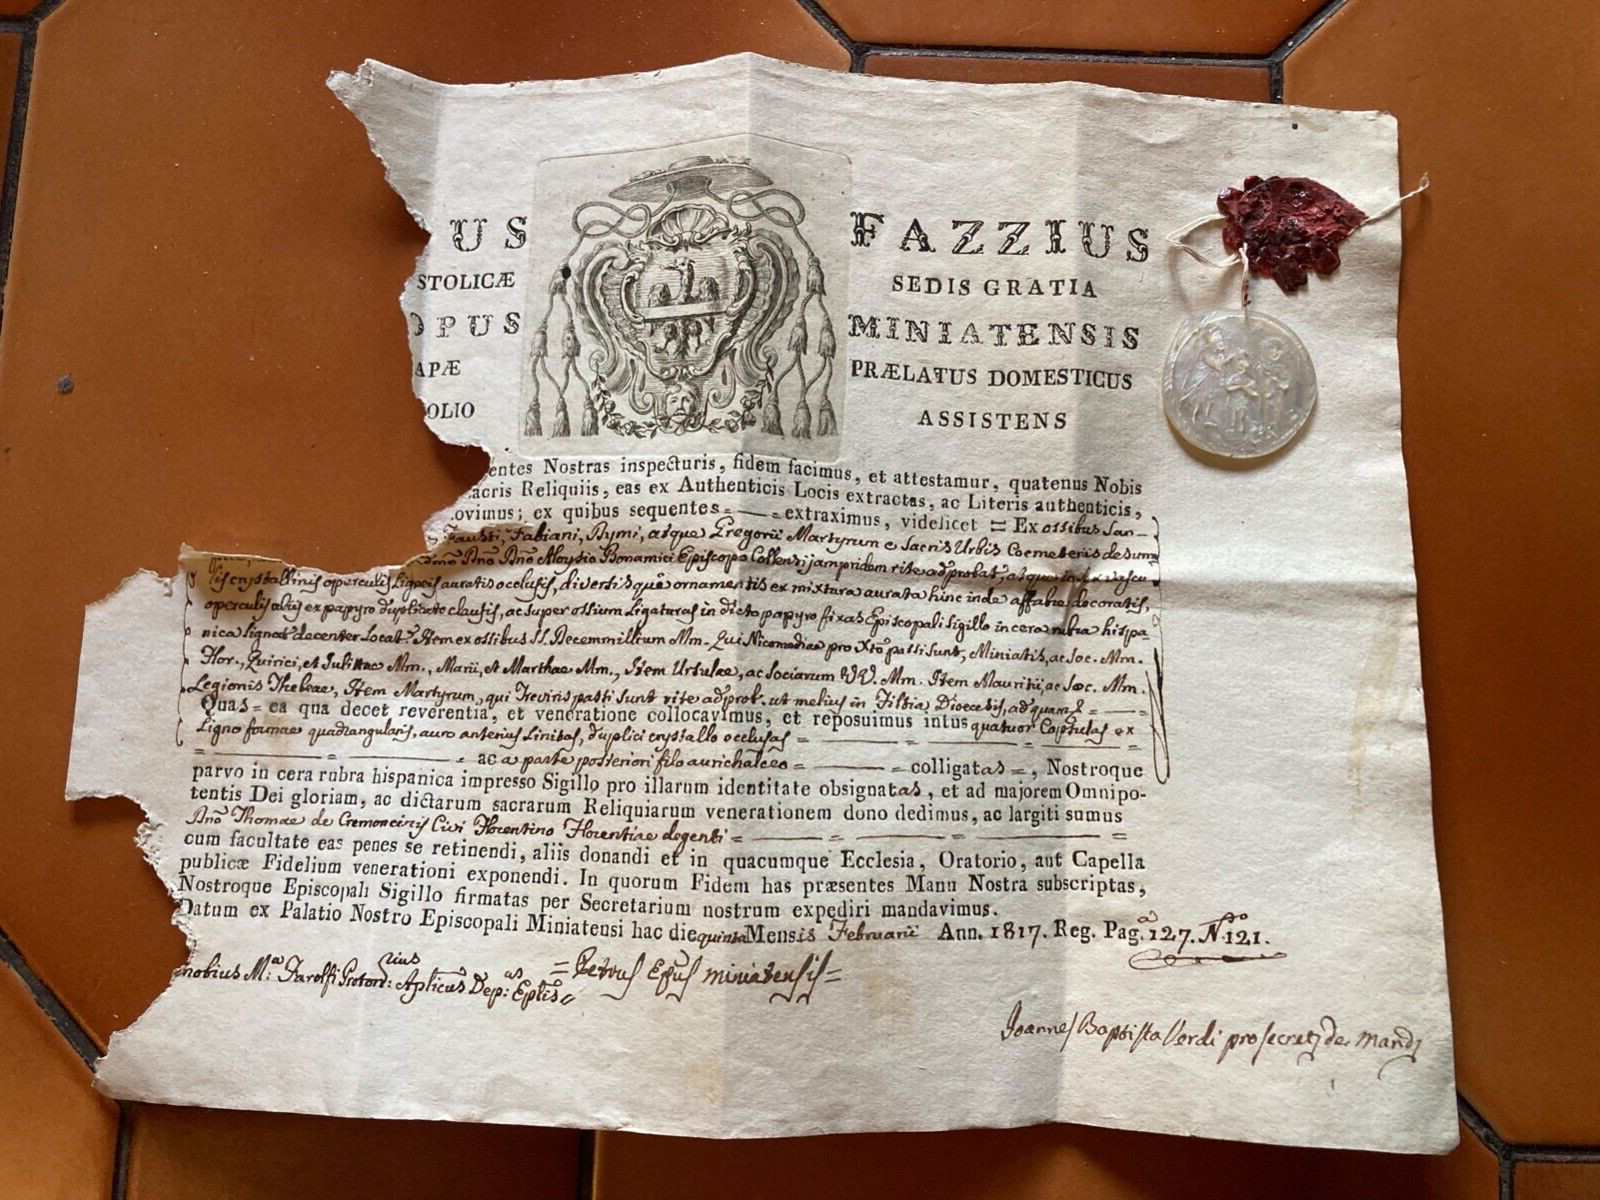 US FAZZIUS
STOLICÆ SEDIS GRATIA
OPUS MINIATENSIS
APÆ PRÆLATUS DOMESTICUS
OLIO ASSISTENS
entes Nostras inspecturis, fidem facimus, et attestamur, quatenus Nobis
acris Reliquiis, eas ex Authenticis Locis extractas, ac Literis authenticis,
ovimus; ex quibus sequentes = — = extraximus, videlicet = Ex ossibus San-
s Fausti, Fabiani, Rymi, atque Gregorii Martyrum e Sacris Urbis Coemeteriis de
Dnō Dnō Aloysio Bonamici Episcopo Collensi jampridem rite adprobat, atque in
lis crystallinis operculis ligneis auratis occlusis, diversisque ornamentis ex mixtura aurata hinc inde affabre decoratis,
operculis aliis ex papyro duplicato clausis, ac super ossium Ligaturas in dicto papyro fixas Episcopali sigillo in cera rubra hispa-
nica signat decenter locat. Item ex ossibus SS. Decemmillium Mm. Qui Nicomediae pro Xto passi sunt, Miniatis, ac Soc. Mm.
Flor., Quirici, et Julittae Mm., Marii, et Marthae Mm., Item Ursulae, ac Sociarum VV. Mm. Item Mauritii, ac Soc. Mm.
Legionis Thebeae, Item Martyrum, qui Treviris passi sunt rite adprob. ut melius in Filtia Dioecesis, ad quam &
Quas = ea qua decet reverentia, et veneratione collocavimus, et reposuimus intus quatuor Capsulas ex
Ligno formae quadrangularis, auro anterius linitas, duplici crystallo occlusas =
= ac a parte posteriori filo aurichalceo = — = colligatas =, Nostroque
parvo in cera rubra hispanica impresso Sigillo pro illarum identitate obsignatas, et ad majorem Omnipo-
tentis Dei gloriam, ac dictarum sacrarum Reliquiarum venerationem dono dedimus, ac largiti sumus
Dnō Thomae de Cremoncinis Civi Florentino Florentiae degenti =
cum facultate eas penes se retinendi, aliis donandi et in quacumque Ecclesia, Oratorio, aut Capella
publicæ Fidelium venerationi exponendi. In quorum Fidem has præsentes Manu Nostra subscriptas,
Nostroque Episcopali Sigillo firmatas per Secretarium nostrum expediri mandavimus.
Datum ex Palatio Nostro Episcopali Miniatensi hac die quinta Mensis Februarii Ann. 1817. Reg. Pag.ª 127. N.º 121.
nobius M.ª Farolfi Proton.rius Aplicus Dep.as Eplis
= Petrus Epūs miniatensis =
Joannes Baptista Verdi pro secret. de Mand.